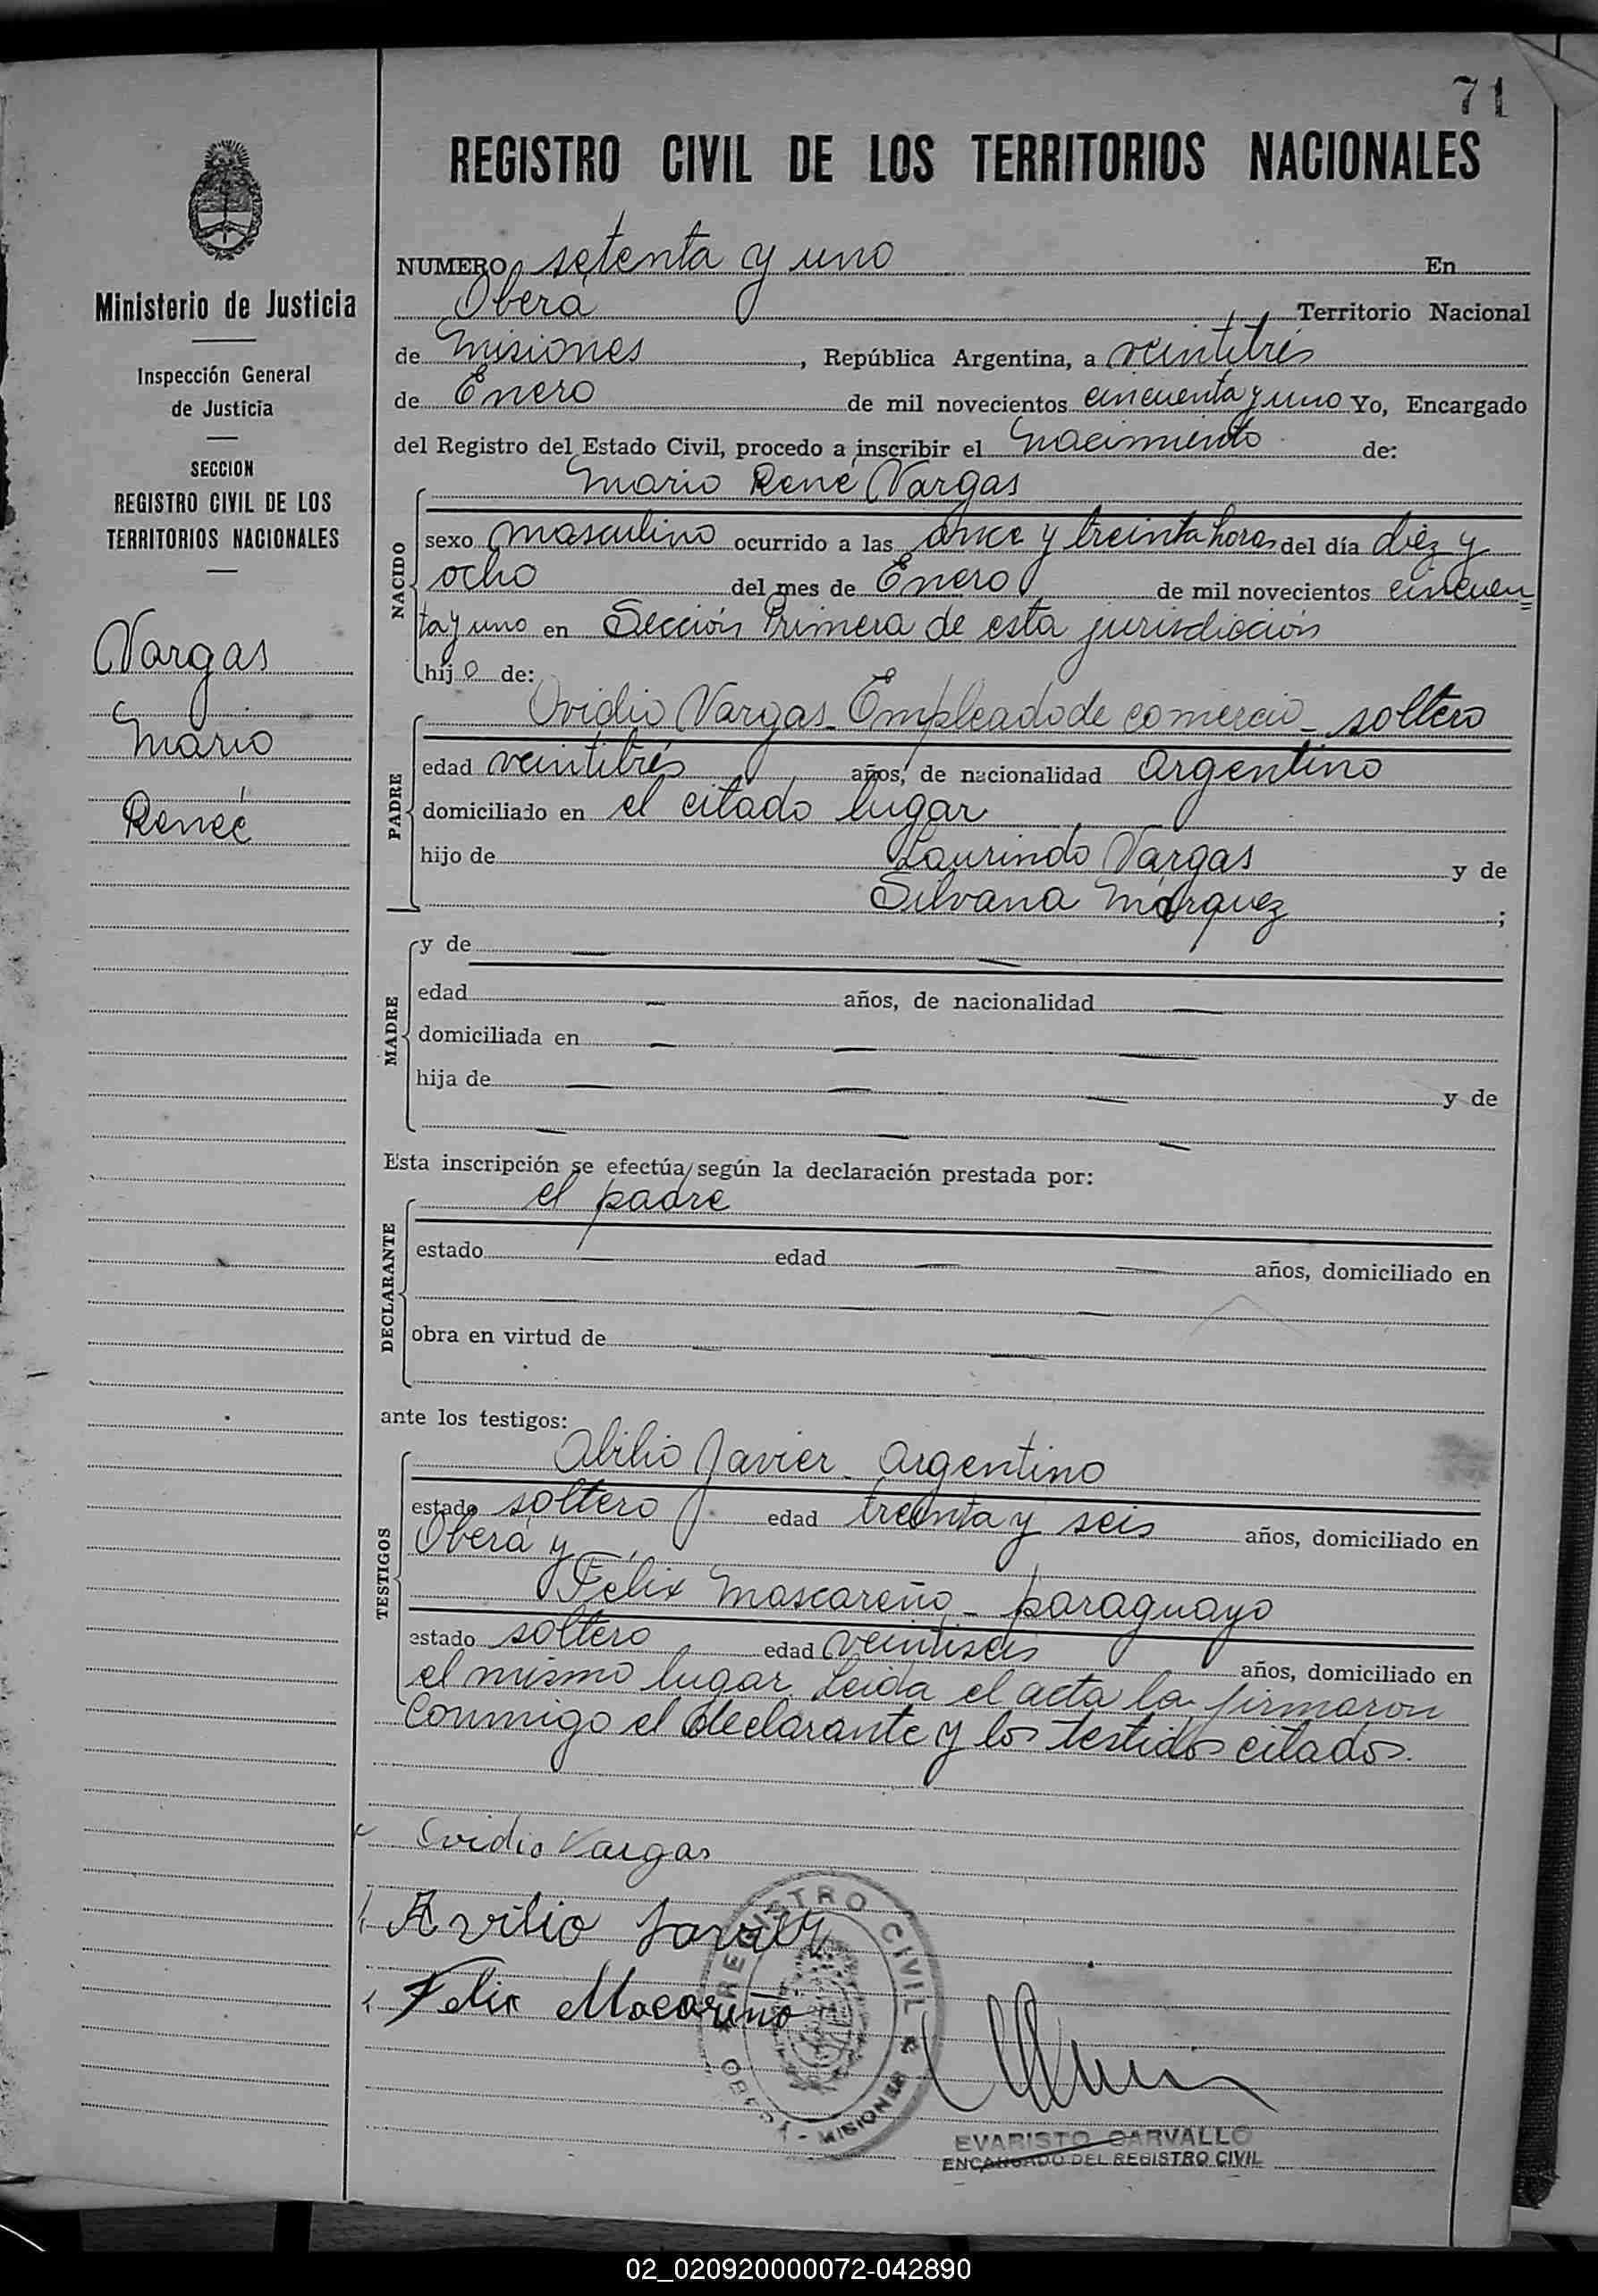 71
REGISTRO CIVIL DE LOS TERRITORIOS NACIONALES
Ministerio de Justicia
Inspección General
de Justicia
SECCION
REGISTRO CIVIL DE LOS
TERRITORIOS NACIONALES
Vargas
Mario
Reneé
NUMERO setenta y uno En
Oberá Territorio Nacional
de Misiones, República Argentina, a veintitrés
de Enero de mil novecientos cincuenta y uno Yo, Encargado
del Registro del Estado Civil, procedo a inscribir el Nacimiento de:
NACIDO
Mario René Vargas
sexo masculino ocurrido a las once y treinta horas del día diez y
ocho del mes de Enero de mil novecientos cincuen=
ta y uno en Sección Primera de esta jurisdicción
hijo de:
PADRE
Ovidio Vargas - Empleado de comercio - soltero
edad veintitrés años, de nacionalidad Argentino
domiciliado en el citado lugar
hijo de Laurindo Vargas y de
Silvana Márquez ;
MADRE
y de — —
edad — años, de nacionalidad —
domiciliada en — — —
hija de — — — y de
— — —
Esta inscripción se efectúa según la declaración prestada por:
DECLARANTE
el padre
estado — edad — — años, domiciliado en
— — —
obra en virtud de — —
ante los testigos:
TESTIGOS
Abilio Javier - Argentino
estado soltero edad treinta y seis años, domiciliado en
Oberá y
Félix Mascareño - paraguayo
estado soltero edad veintiseis años, domiciliado en
el mismo lugar Leida el acta la firmaron
Conmigo el declarante y los testidos citados.
Ovidio Vargas
Avilio Javier
Felix Macariño
REGISTRO CIVIL
OBERÁ - MISIONES
EVARISTO CARVALLO
ENCARGADO DEL REGISTRO CIVIL
02_020920000072-042890